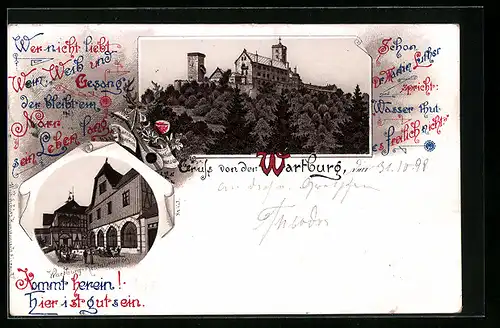 Wer nicht liebt
Wein, Weib und
Gesang
der bleibt ein
Narr
sein Leben lang
Schon
Dr. Martin Luther
spricht:
Wasser thut
es freilich nicht"
Gruss von der Wartburg, den 31.10.98
Theodor
Kommt herein!
Hier ist gut sein.